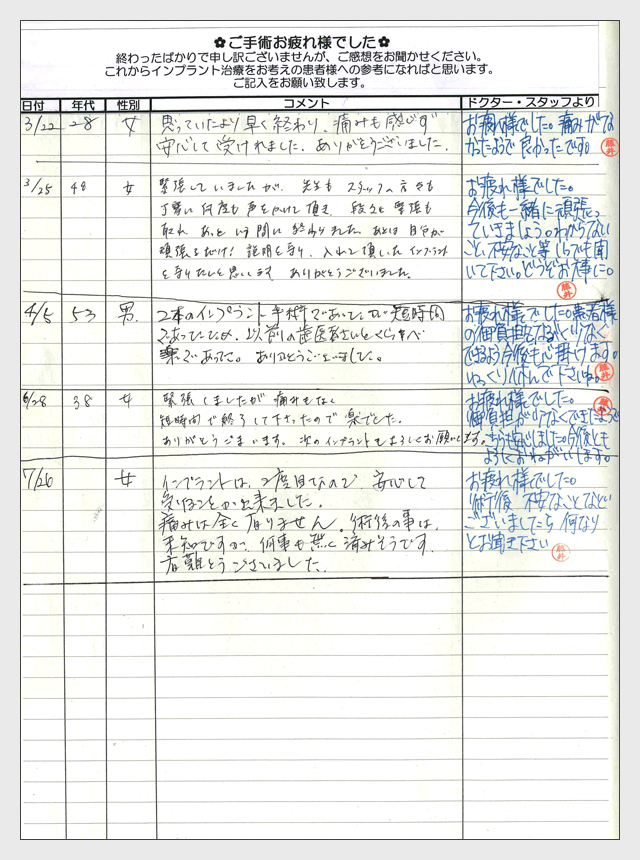 ✿ご手術お疲れ様でした✿
終わったばかりで申し訳ございませんが、ご感想をお聞かせください。
これからインプラント治療をお考えの患者様への参考になればと思います。
ご記入をお願い致します。
日付 年代 性別 コメント ドクター・スタッフより
3/22 28 女
思っていたより早く終わり、痛みも感じず
安心して受けれました。ありがとうございました。
お疲れ様でした。痛みがな
かったようで良かったです。
3/25 48 女
緊張していましたが、先生も スタッフの方々も
丁寧に何度も声をかけて頂き、段々と緊張も
取れ、あっという間に終わりました。あとは自分が
頑張るだけ! 説明を守り、入れて頂いたインプラント
を守りたいと思います ありがとうございました。
お疲れ様でした。
今後も一緒に頑張っ
ていきましょう。わからない
こと、不安なこと等 いつでも聞
いて下さい。どうぞお大事に。
4/5 53 男
2本のインプラント手術であったが短時間
であったため、以前の歯医者さんとくらべ
楽であった。ありがとうございました。
お疲れ様でした。患者様
の御負担をなるべく少なく
できるよう今後も心掛けます。
ゆっくり休んで下さいね。
6/28 38 女
緊張しましたが痛みもなく
短時間で終了して下さったので楽でした。
ありがとうございます。次のインプラントもよろしくお願いします。
お疲れ様でした。
御負担が少なくできたようで
安心しました。今後とも
よろしくおねがいします。
7/26 女
インプラントは、2度目なので、安心して
受けることが出来ました。
痛みは全く有りません。術後の事は、
未知ですが、何事も無く済みそうです。
有難とうございました。
お疲れ様でした。
術後、不安なことなどご
ざいましたら何なり
とお聞き下さい